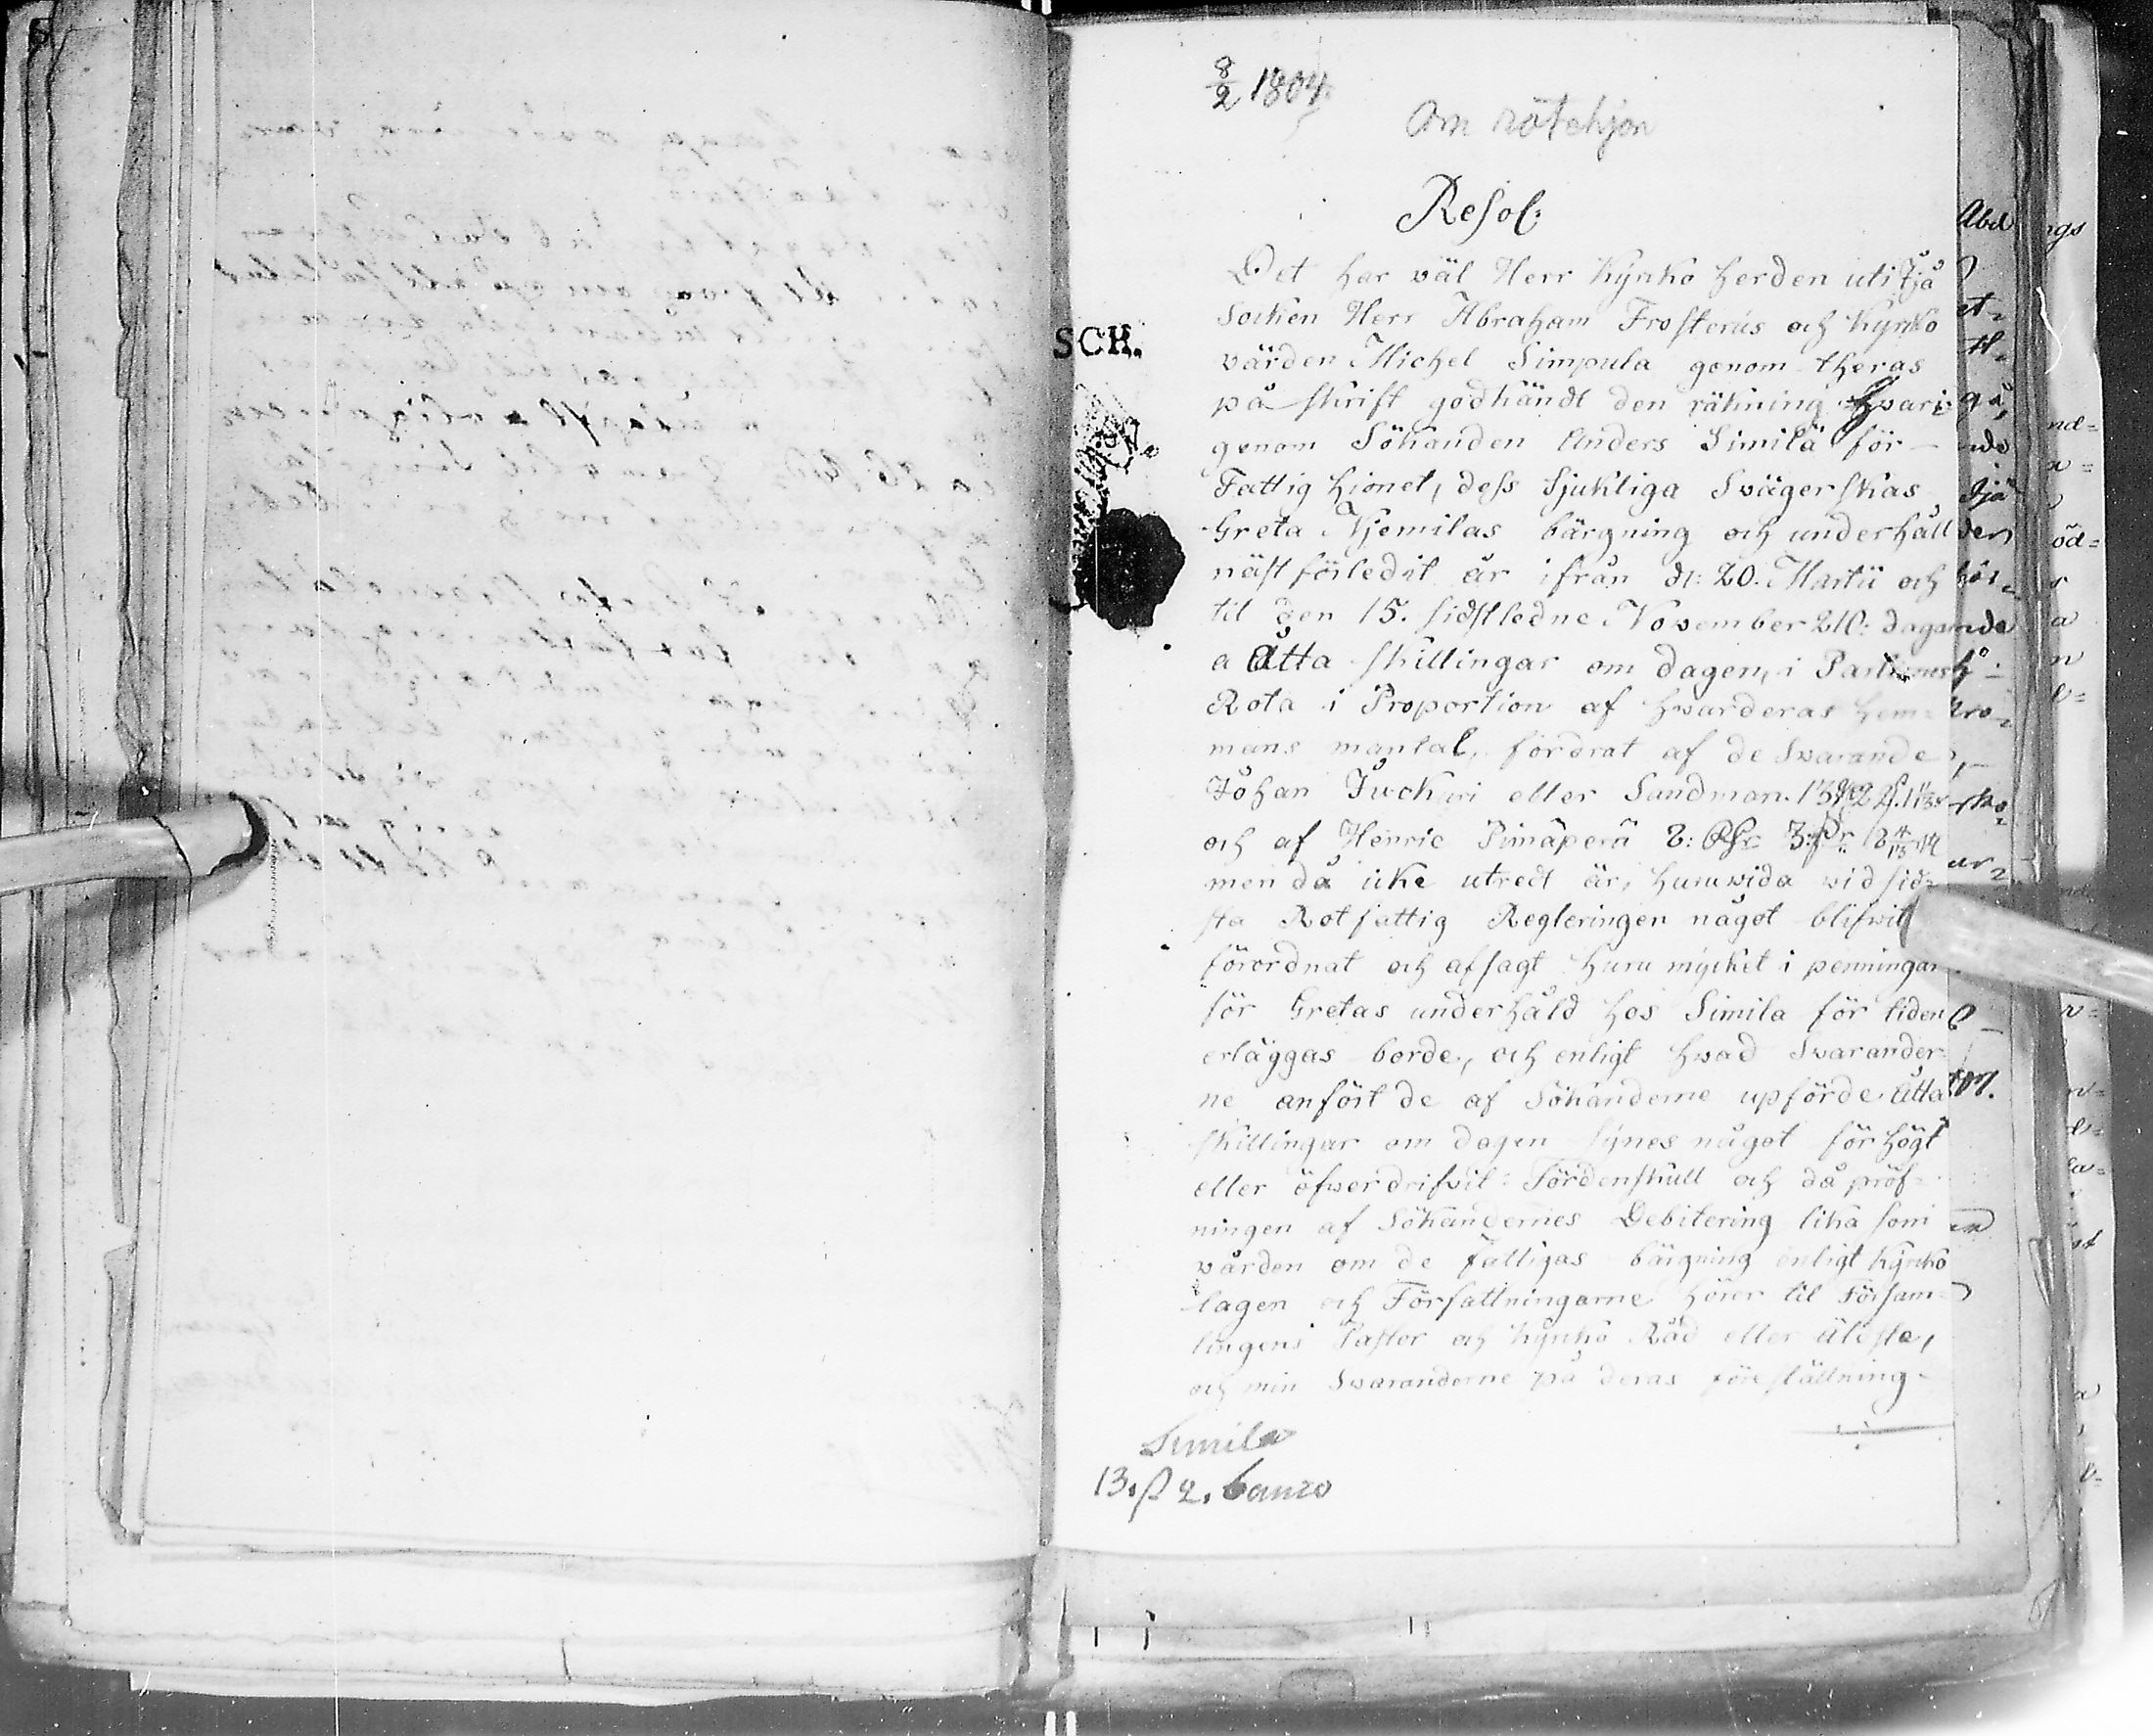 8/2 1804
Om rotehjon
Resol:
Det har wäl Herr Kyrko herden uti Ijå
Socken Herr Abraham Frosterus och Kyrko
värden Michel Simpula genom theras
på skrift godkändt den räkning hvari-
genom Sökanden Anders Similä för
Fattig hionet, dess Sjukliga Svägerskas
Greta Njemilas bärgning och underhåll
näst förledit år ifrån d: 20. Martii och
til den 15. sidstledne November 210: dagar
a Åtta skillingar om dagen, i
Rota i Proportion af hwarderas hem-
mans mantal, fordrat af de Swarande
Johan Juckuri eller Sandman
och af Henric Pinäperä 2: 3:
men då icke utredt är, huruwida wid sid-
sta Rotfattig Regleringen något blifwit
förordnat och afsagt huru mycket i penningar
för Gretas underhåld hos Simila för tiden
erläggas borde, och enligt hwad Swarander-
ne anfört de af Sökanderne upförde Åtta
skillingar om dagen synes något för högt
eller öfwerdrifwit: Fördenskull och då pröf-
ningen af Sökandernes Debitering lika som
wården om de fattigas bärgning enligt Kyrko
lagen och Författningarne hörer til Församl-
lingens Pastor och Kyrko Råd eller Äldste,
och min Swaranderne på deras föreställning-
Simila
13. β 2. banco
SCH.